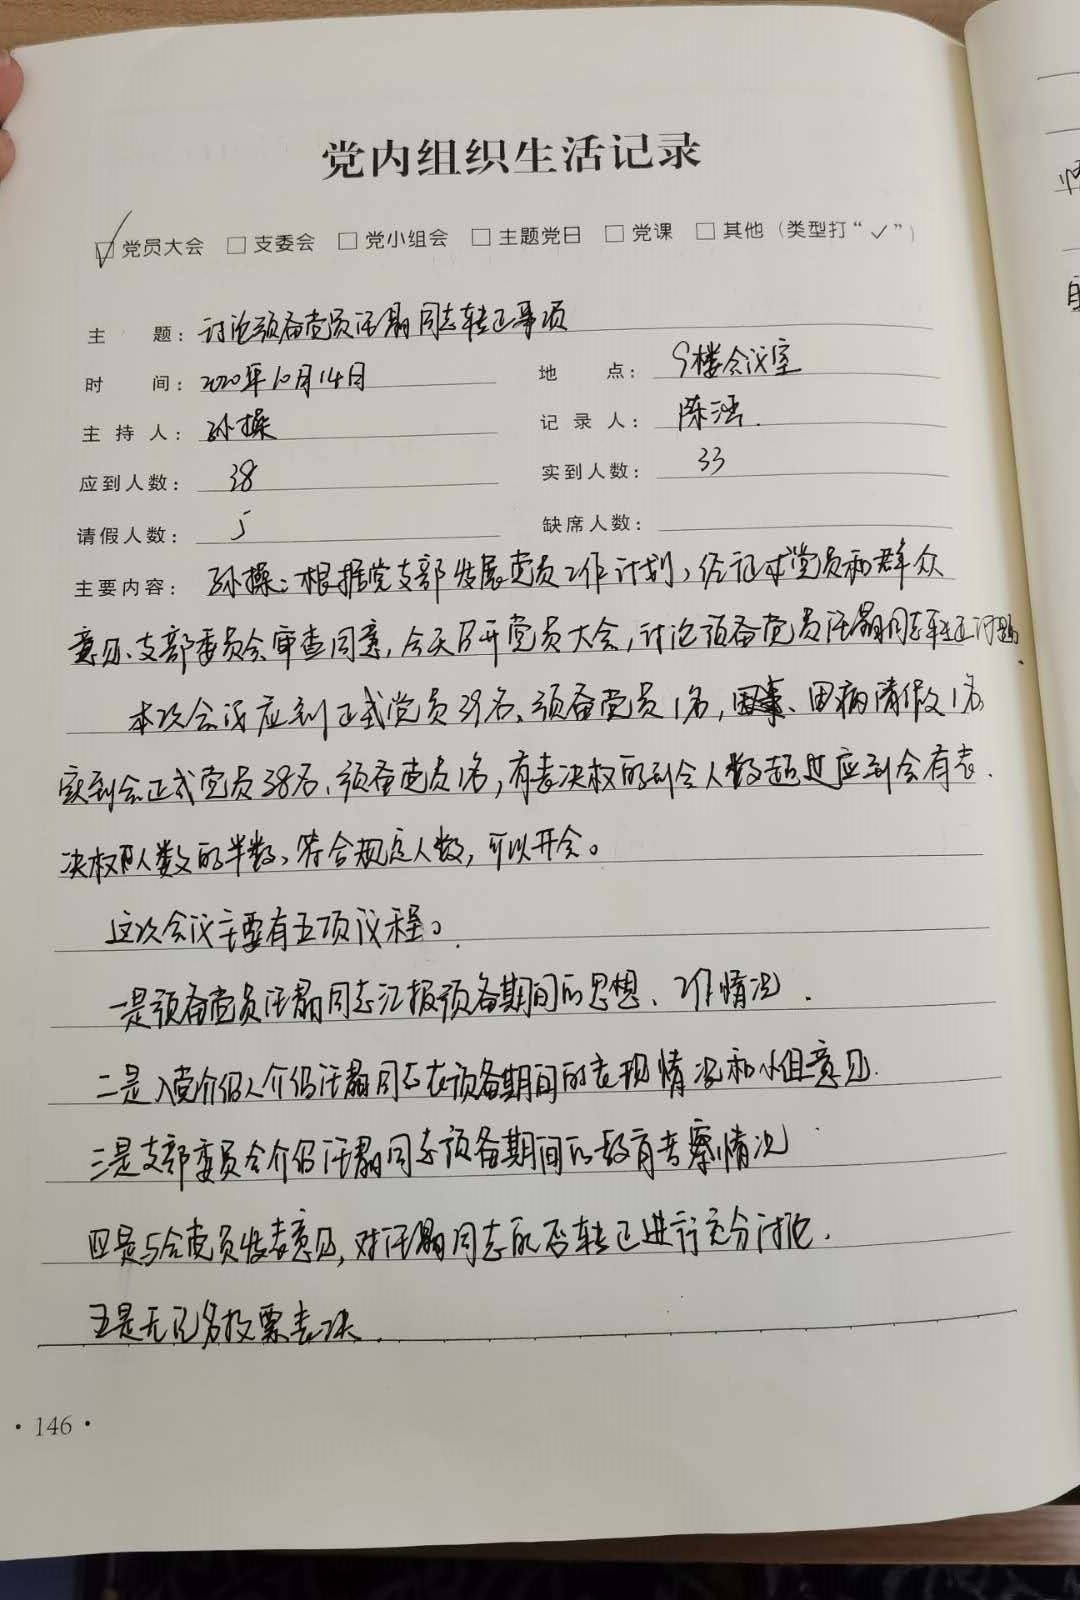 党内组织生活记录
☑党员大会 □支委会 □党小组会 □主题党日 □党课 □其他（类型打“✓”）
主 题：讨论预备党员汪翮同志转正事项
时 间：2020年10月14日 地 点：9楼会议室
主持人：孙操 记录人：陈洁.
应到人数：38 实到人数：33
请假人数：5 缺席人数：
主要内容：孙操：根据党支部发展党员工作计划，经征求党员和群众
意见、支部委员会审查同意，今天召开党员大会，讨论预备党员汪翮同志转正问题.
本次会议应到正式党员39名、预备党员1名，因病请假1名
实到会正式党员38名、预备党员1名，有表决权的到会人数超过应到会有表
决权人数的半数，符合规定人数，可以开会。
这次会议主要有五项议程。
一是预备党员汪翮同志汇报预备期间的思想、工作情况.
二是入党介绍人介绍汪翮同志在预备期间的表现情况和小组意见.
三是支部委员会介绍汪翮同志预备期间的教育考察情况
四是与会党员发表意见，对汪翮同志能否转正进行充分讨论.
五是无记名投票表决.
·146·